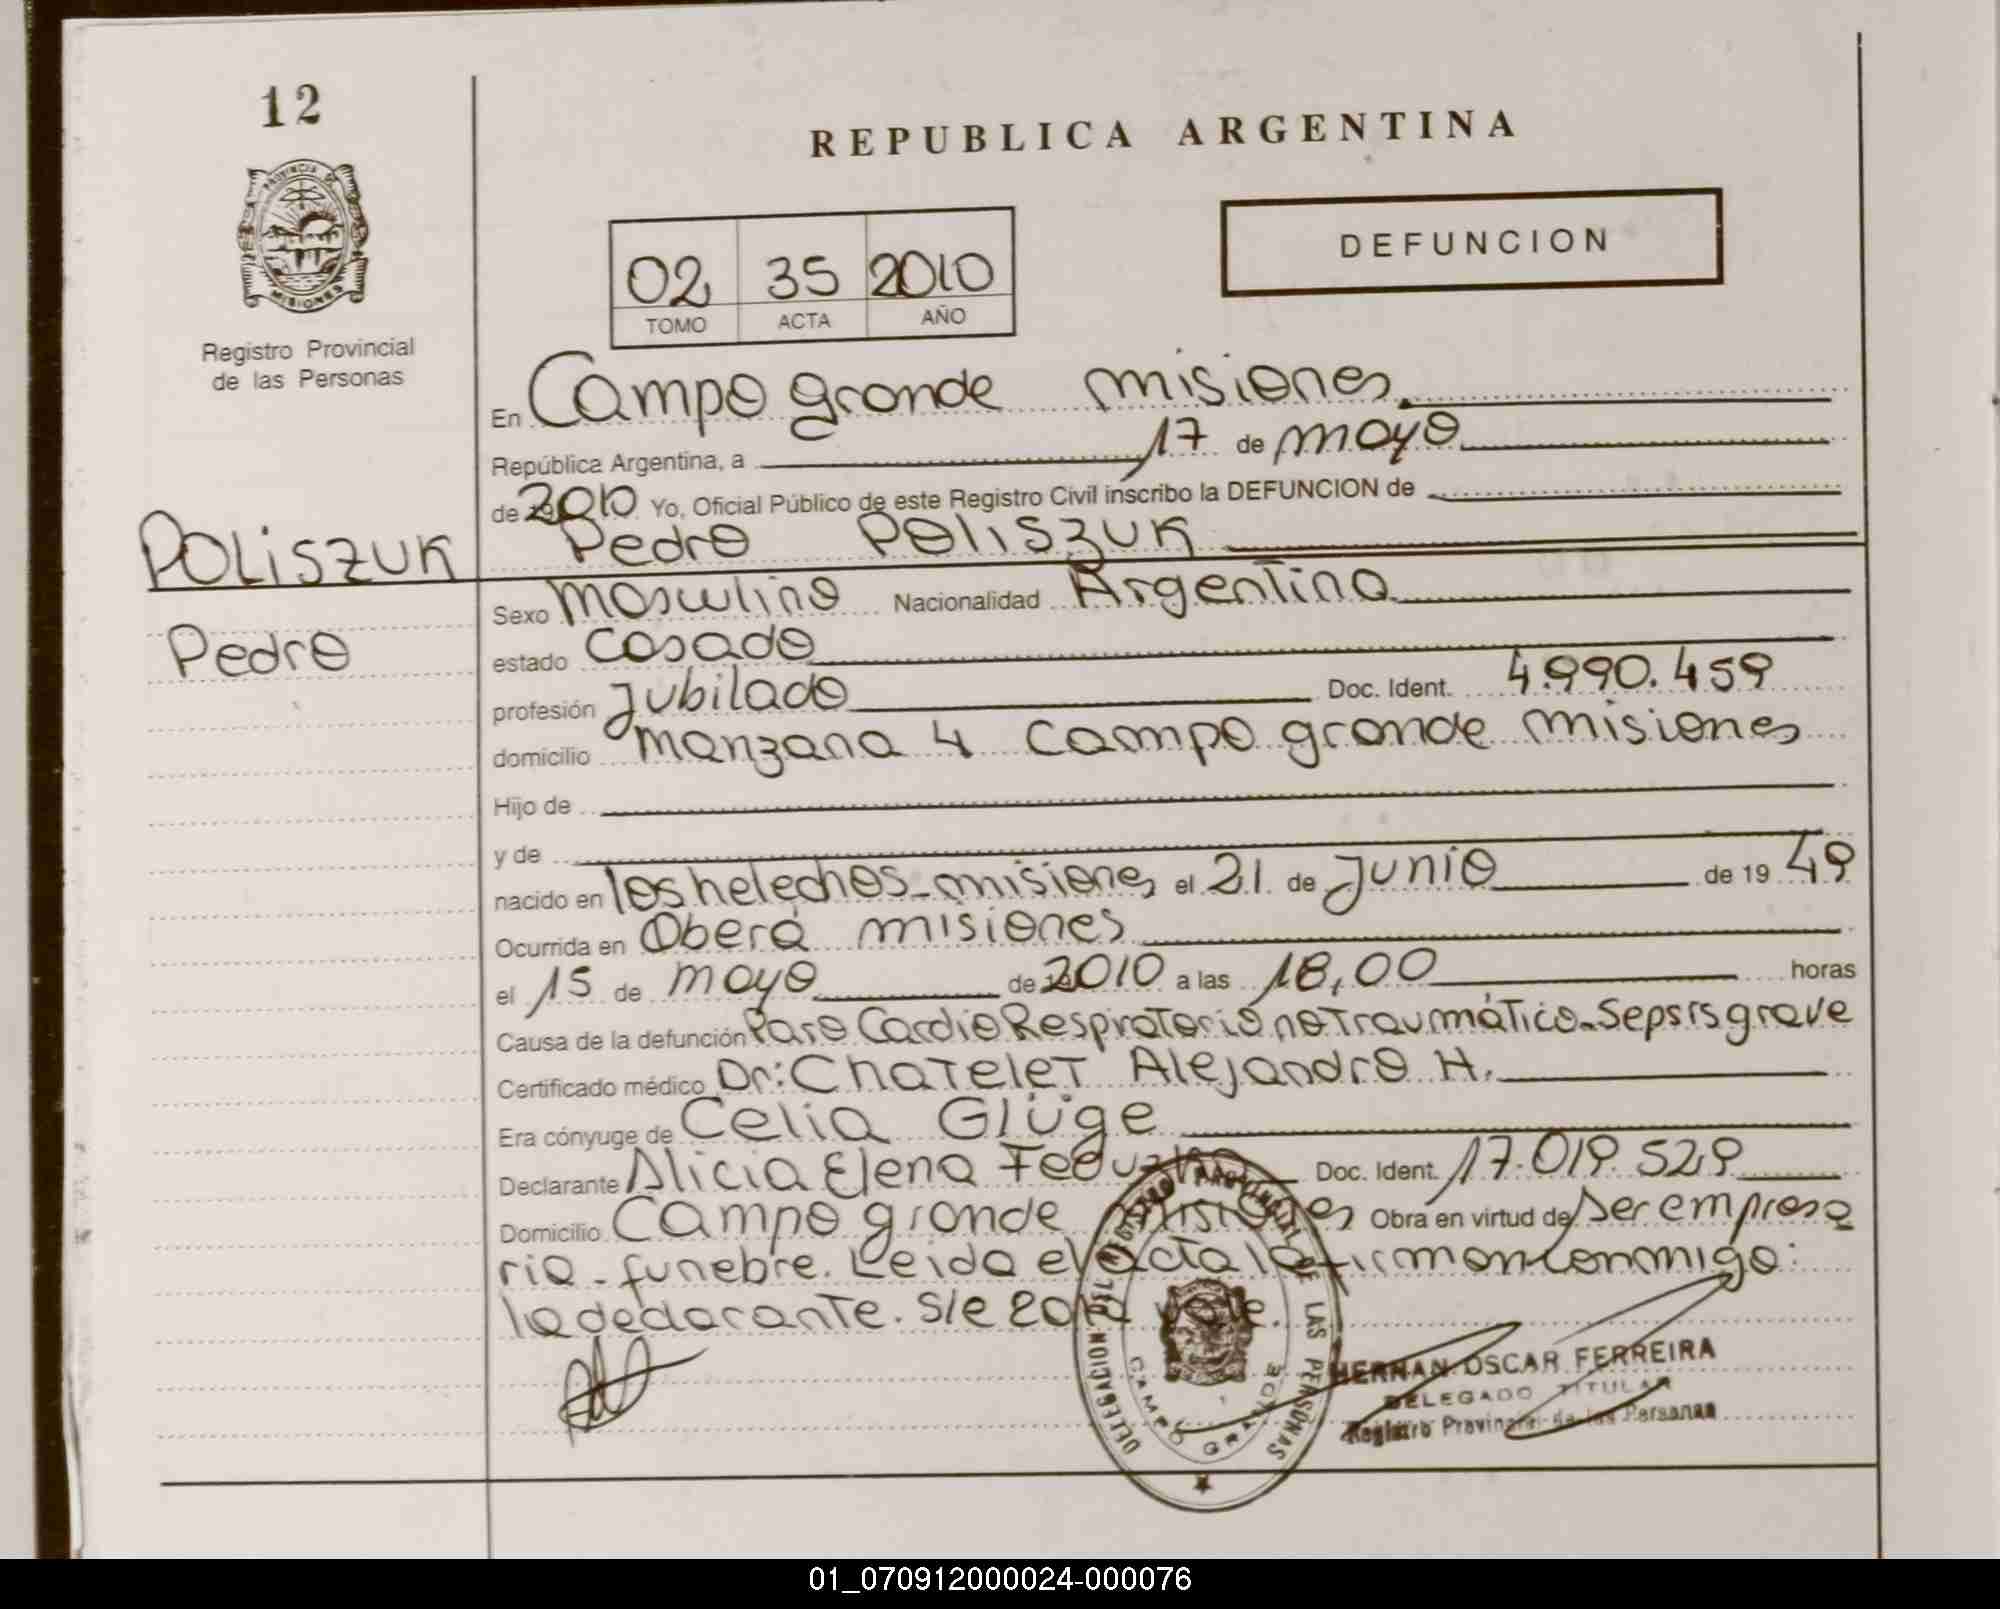 12
REPUBLICA ARGENTINA
PROVINCIA DE
MISIONES
DEFUNCION
02 35 2010
TOMO ACTA AÑO
Registro Provincial
de las Personas
En Campo grande misiones
República Argentina, a 17 de mayo
de 2010 Yo, Oficial Público de este Registro Civil inscribo la DEFUNCION de
POLISZUK Pedro POLISZUK
Sexo masculino Nacionalidad Argentina
Pedro
estado casado
profesión Jubilado Doc. Ident. 4.990.459
domicilio manzana 4 campo grande misiones
Hijo de
y de
nacido en los helechos - misiones el 21 de Junio de 19 49
Ocurrida en Oberá misiones
el 15 de mayo de 2010 a las 18,00 horas
Causa de la defunción Paro Cardio Respiratorio no Traumático - Sepsis grave
Certificado médico Dr: Chatelet Alejandro H.
Era cónyuge de Celia Glüge
Declarante Alicia Elena Doc. Ident. 17.019.529
Domicilio Campo grande misiones Obra en virtud de ser empresa
ria - funebre. Leida el acta la firman conmigo:
la declarante. S/e 2010 vale.
DELEGACION DEL REGISTRO PROVINCIAL DE LAS PERSONAS
CAMPO GRANDE
HERNAN OSCAR FERREIRA
DELEGADO TITULAR
Registro Provincial de las Personas
01_070912000024-000076